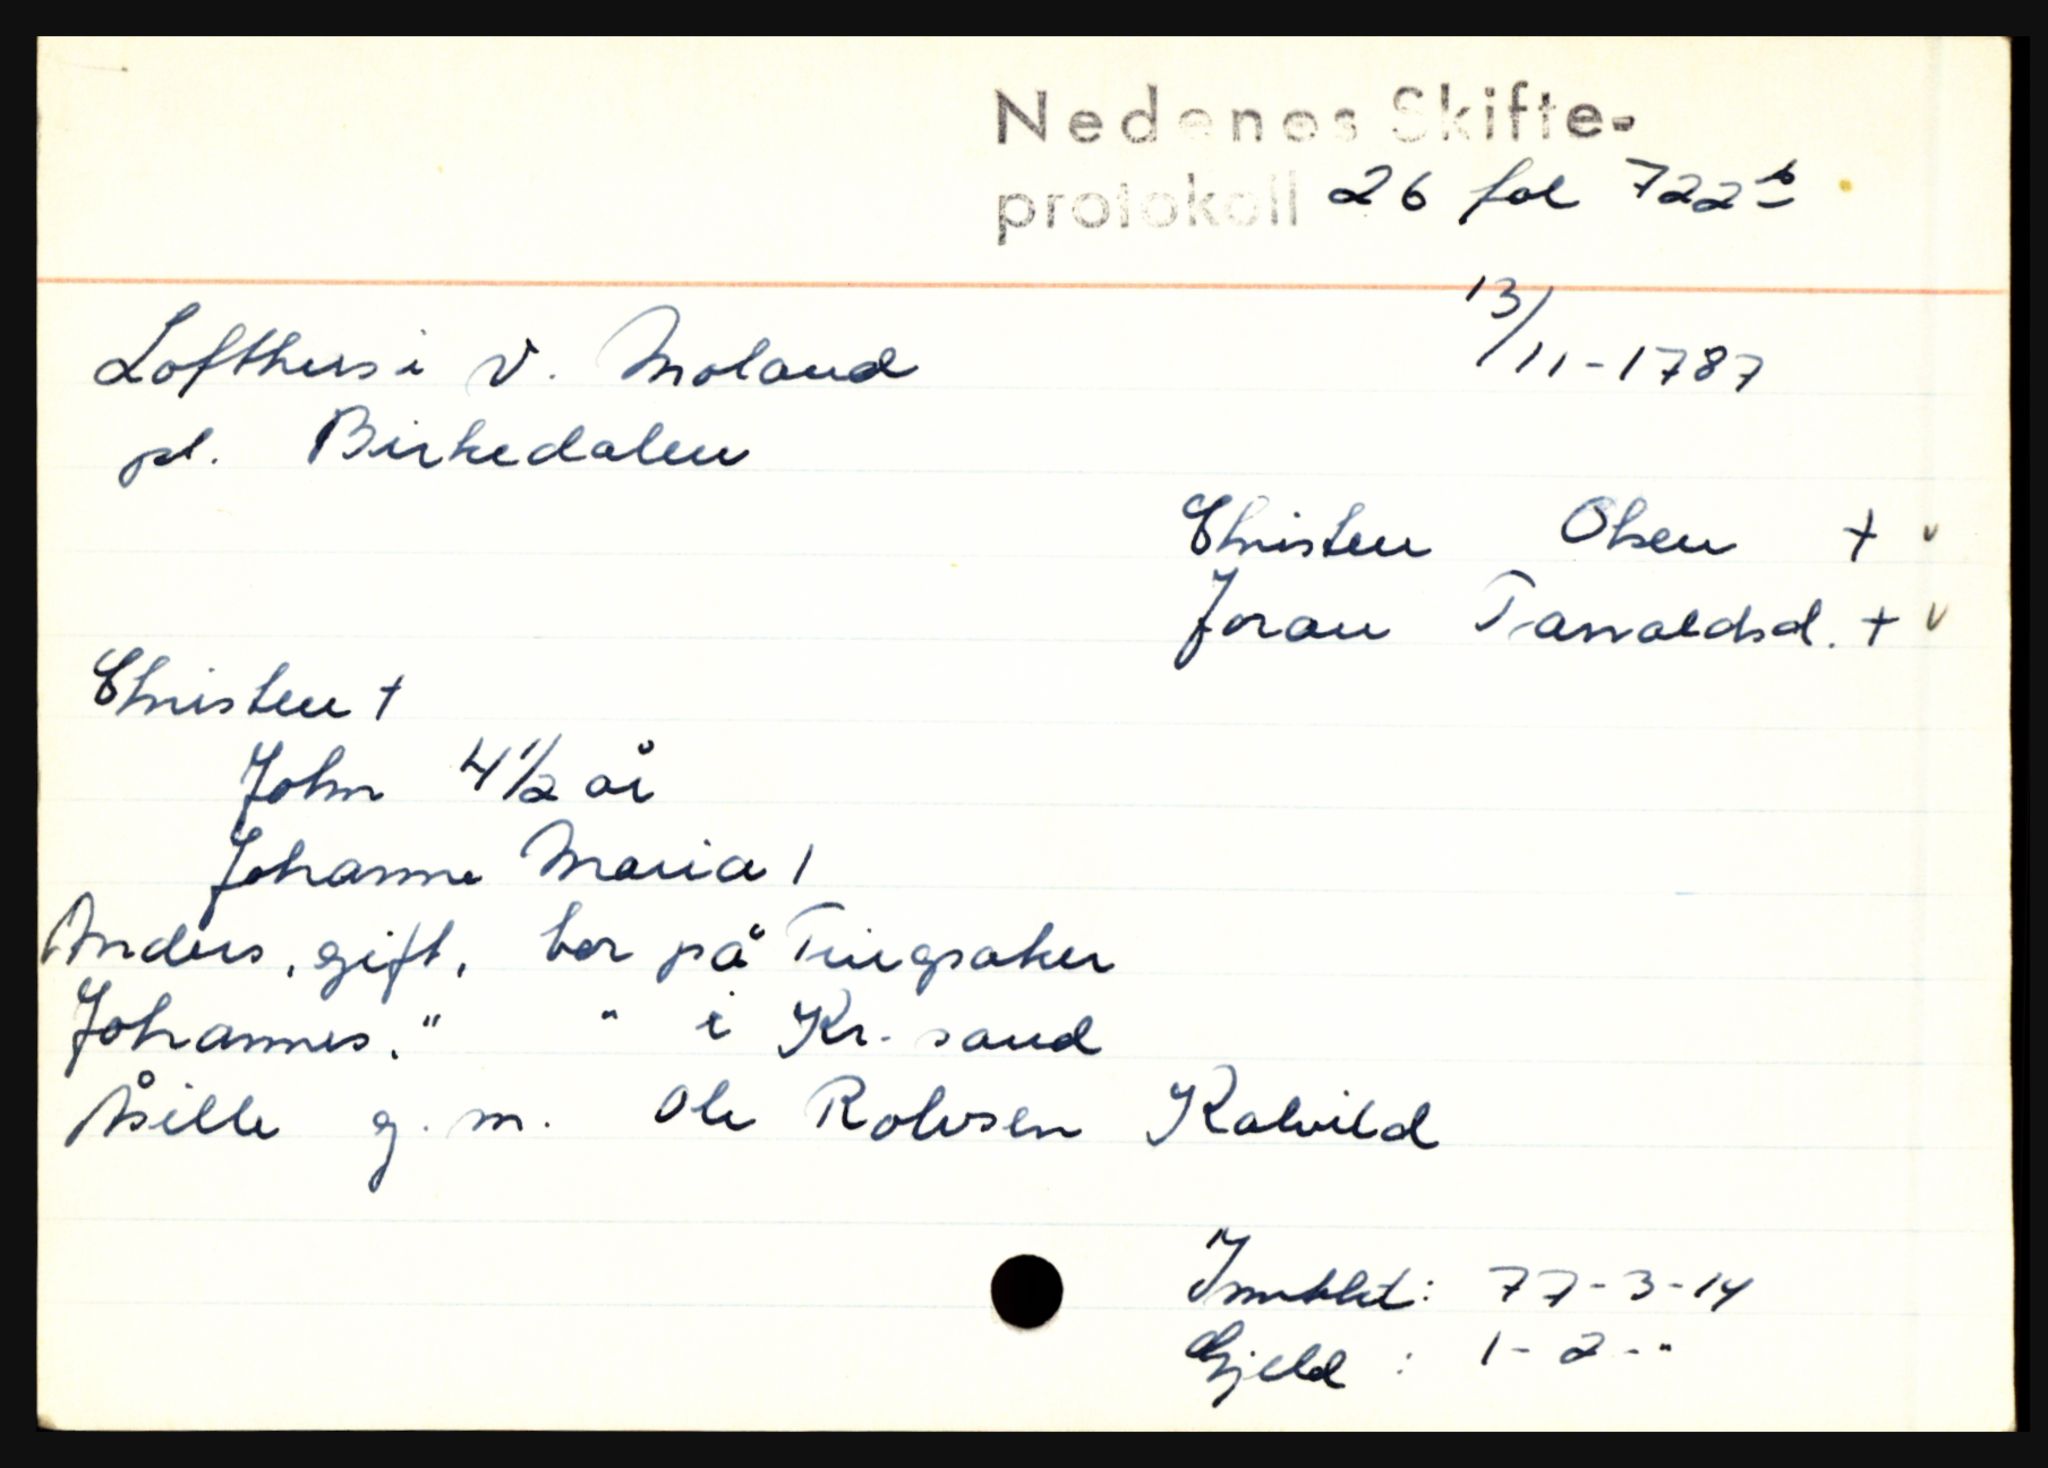 Nedenes Skifte-
protokoll 26 fol 722b
13/11-1787
Lofthus i V. Moland
pl. Birkedalen
Christen Olsen + v
Joran Tarvaldsd. + v
Christen +
John 4 1/2 år
Johanne Maria 1
Anders, gift, bor på Tingsaker
Johannes, " " i Kr. sand
Åsille g. m. Ole Rolvsen Kalvild
Innbtet: 77-3-14
Gjeld : 1-2-"